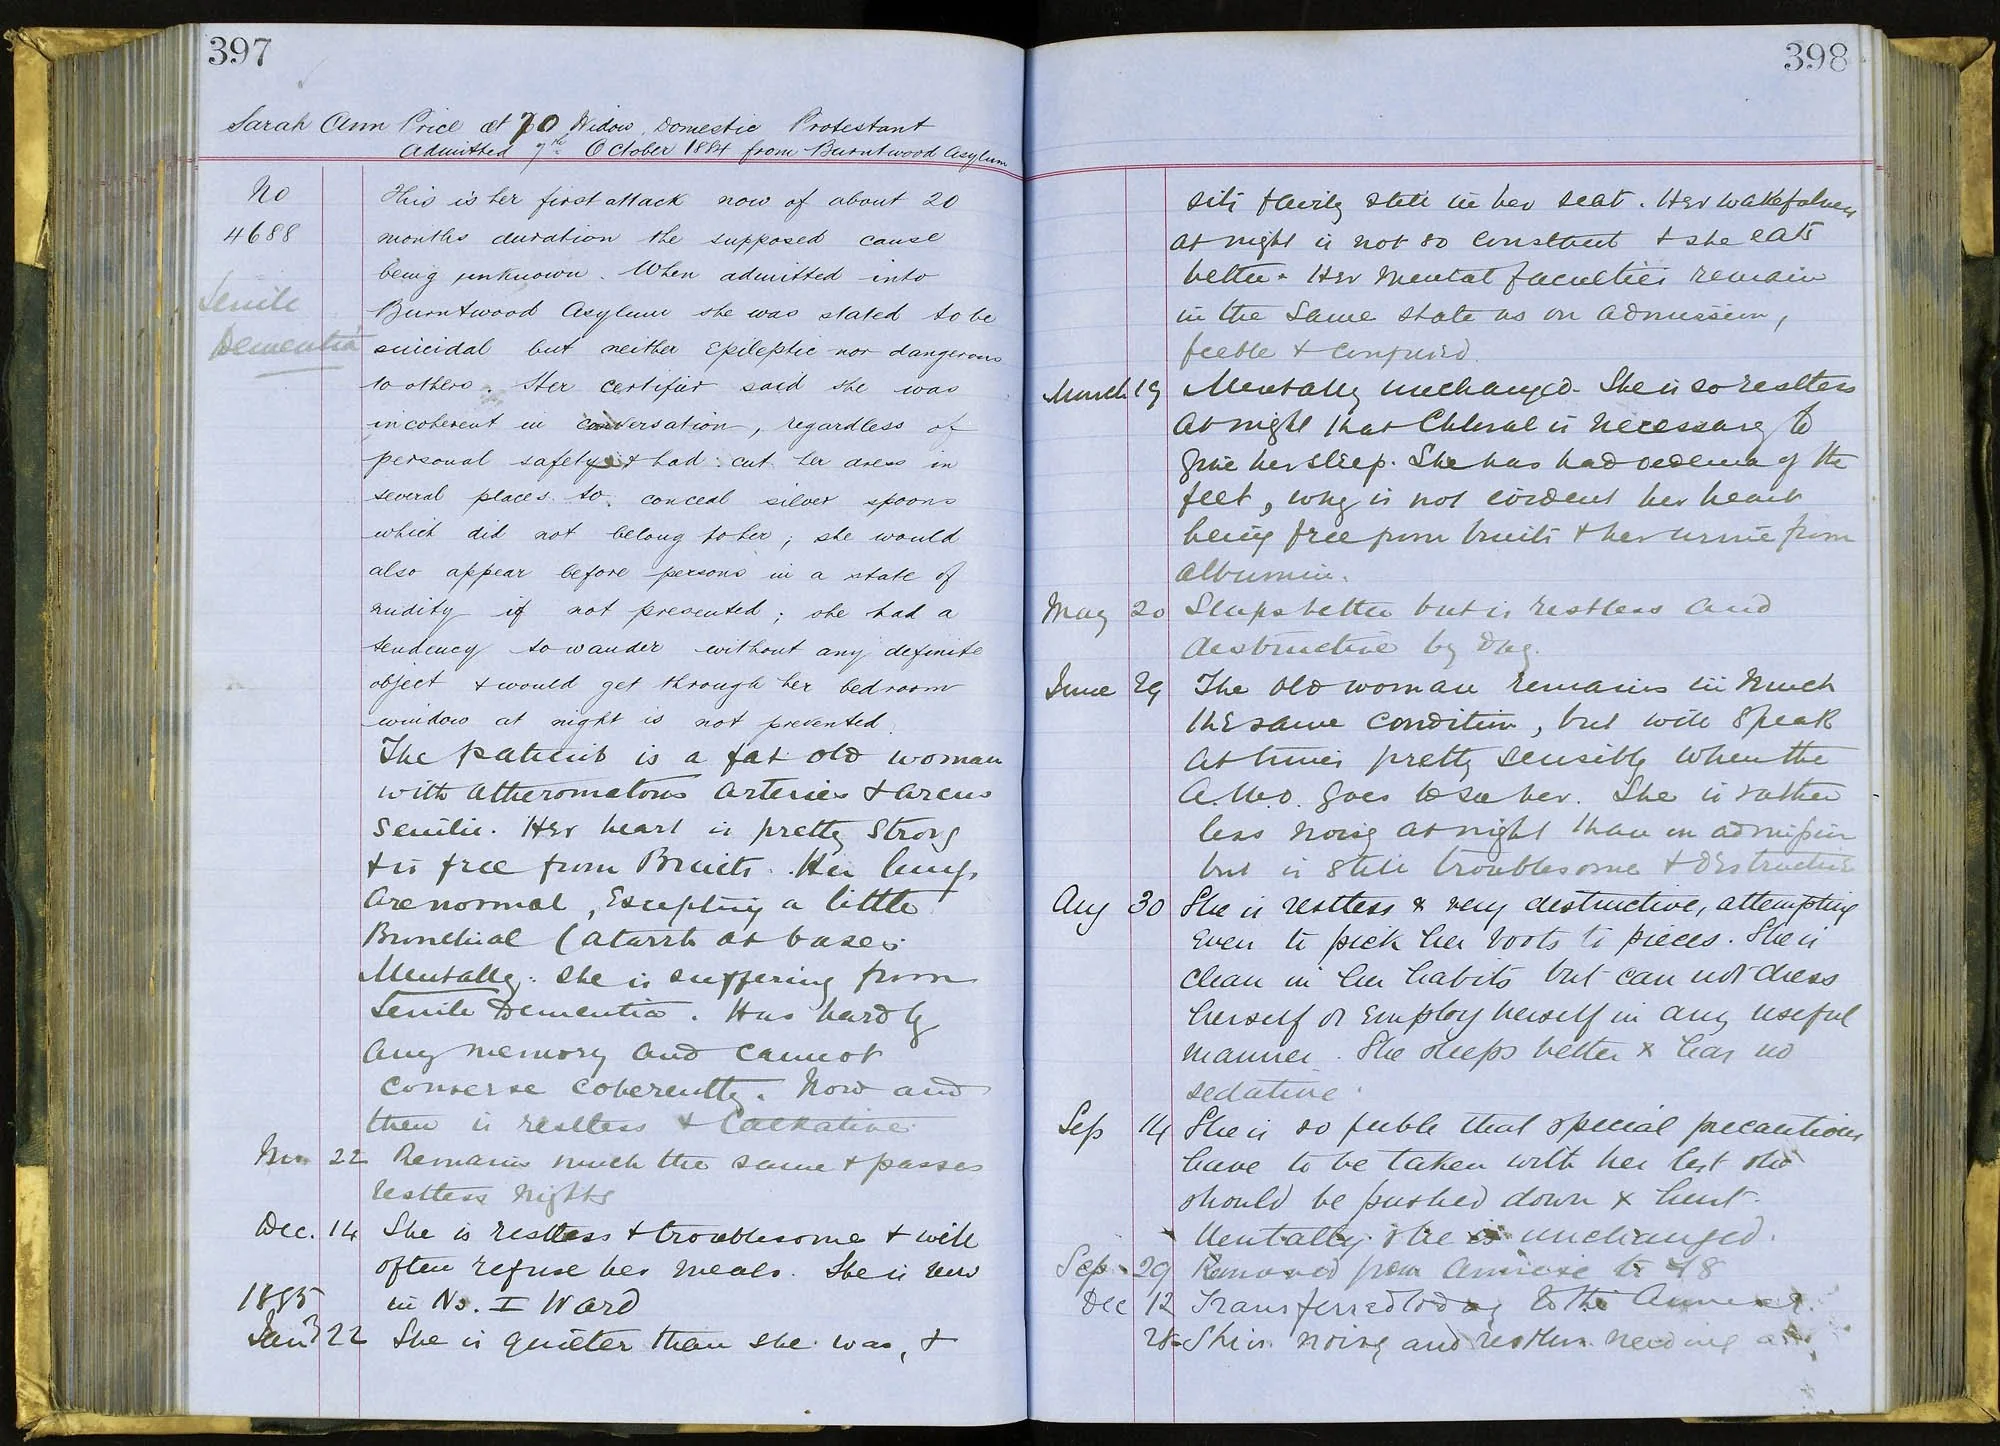 397
Sarah Ann Price æt 70 Widow Domestic Protestant
Admitted 7th October 1884 from Burntwood Asylum
No
4688
Senile
Dementia
This is her first attack now of about 20
months duration the supposed cause
being unknown. When admitted into
Burntwood Asylum she was stated to be
suicidal but neither Epileptic nor dangerous
to others. Her certifier said she was
incoherent in conversation, regardless of
personal safety & had cut her dress in
several places to conceal silver spoons
which did not belong to her; she would
also appear before persons in a state of
nudity if not prevented; she had a
tendency to wander without any definite
object & would get through her bedroom
window at night is not prevented.
The patient is a fat old woman
with atheromatous arteries & arcus
senilis. Her heart is pretty strong
& is free from Bruits. Her lungs
are normal, Excepting a little
Bronchial Catarrh at bases.
Mentally: she is suffering from
Senile Dementia. Has hardly
any memory and cannot
converse coherently. Now and
then is restless & talkative.
Nov 22 Remains much the same & passes
restless nights
Dec. 14 She is restless & troublesome & will
often refuse her meals. She is now
1885 in No. I Ward
Jany 22 She is quieter than she was, &
398
sits fairly still in her seat. Her wakefulness
at night is not so constant & she eats
better. Her mental faculties remain
in the same state as on admission,
feeble & confused.
March 19 Mentally unchanged. She is so restless
at night that Chloral is necessary to
give her sleep. She has had oedema of the
feet, why is not evident her heart
being free from bruits & her urine from
albumin.
May 20 Sleeps better but is restless and
destructive by day.
June 29 The old woman remains in much
the same condition, but will speak
at times pretty sensibly when the
A.M.O. goes to see her. She is rather
less noisy at night than on admission
but is still troublesome & destructive
Aug 30 She is restless & very destructive, attempting
even to pick her boots to pieces. She is
clean in her habits but can not dress
herself or employ herself in any useful
manner. She sleeps better & has no
sedative.
Sep 14 She is so feeble that special precautions
have to be taken with her lest she
should be pushed down & hurt.
Mentally she is unchanged.
Sep 29 Removed from Annexe to 18
Dec 12 Transferred today to the Annexe.
28 She is noisy and restless needing